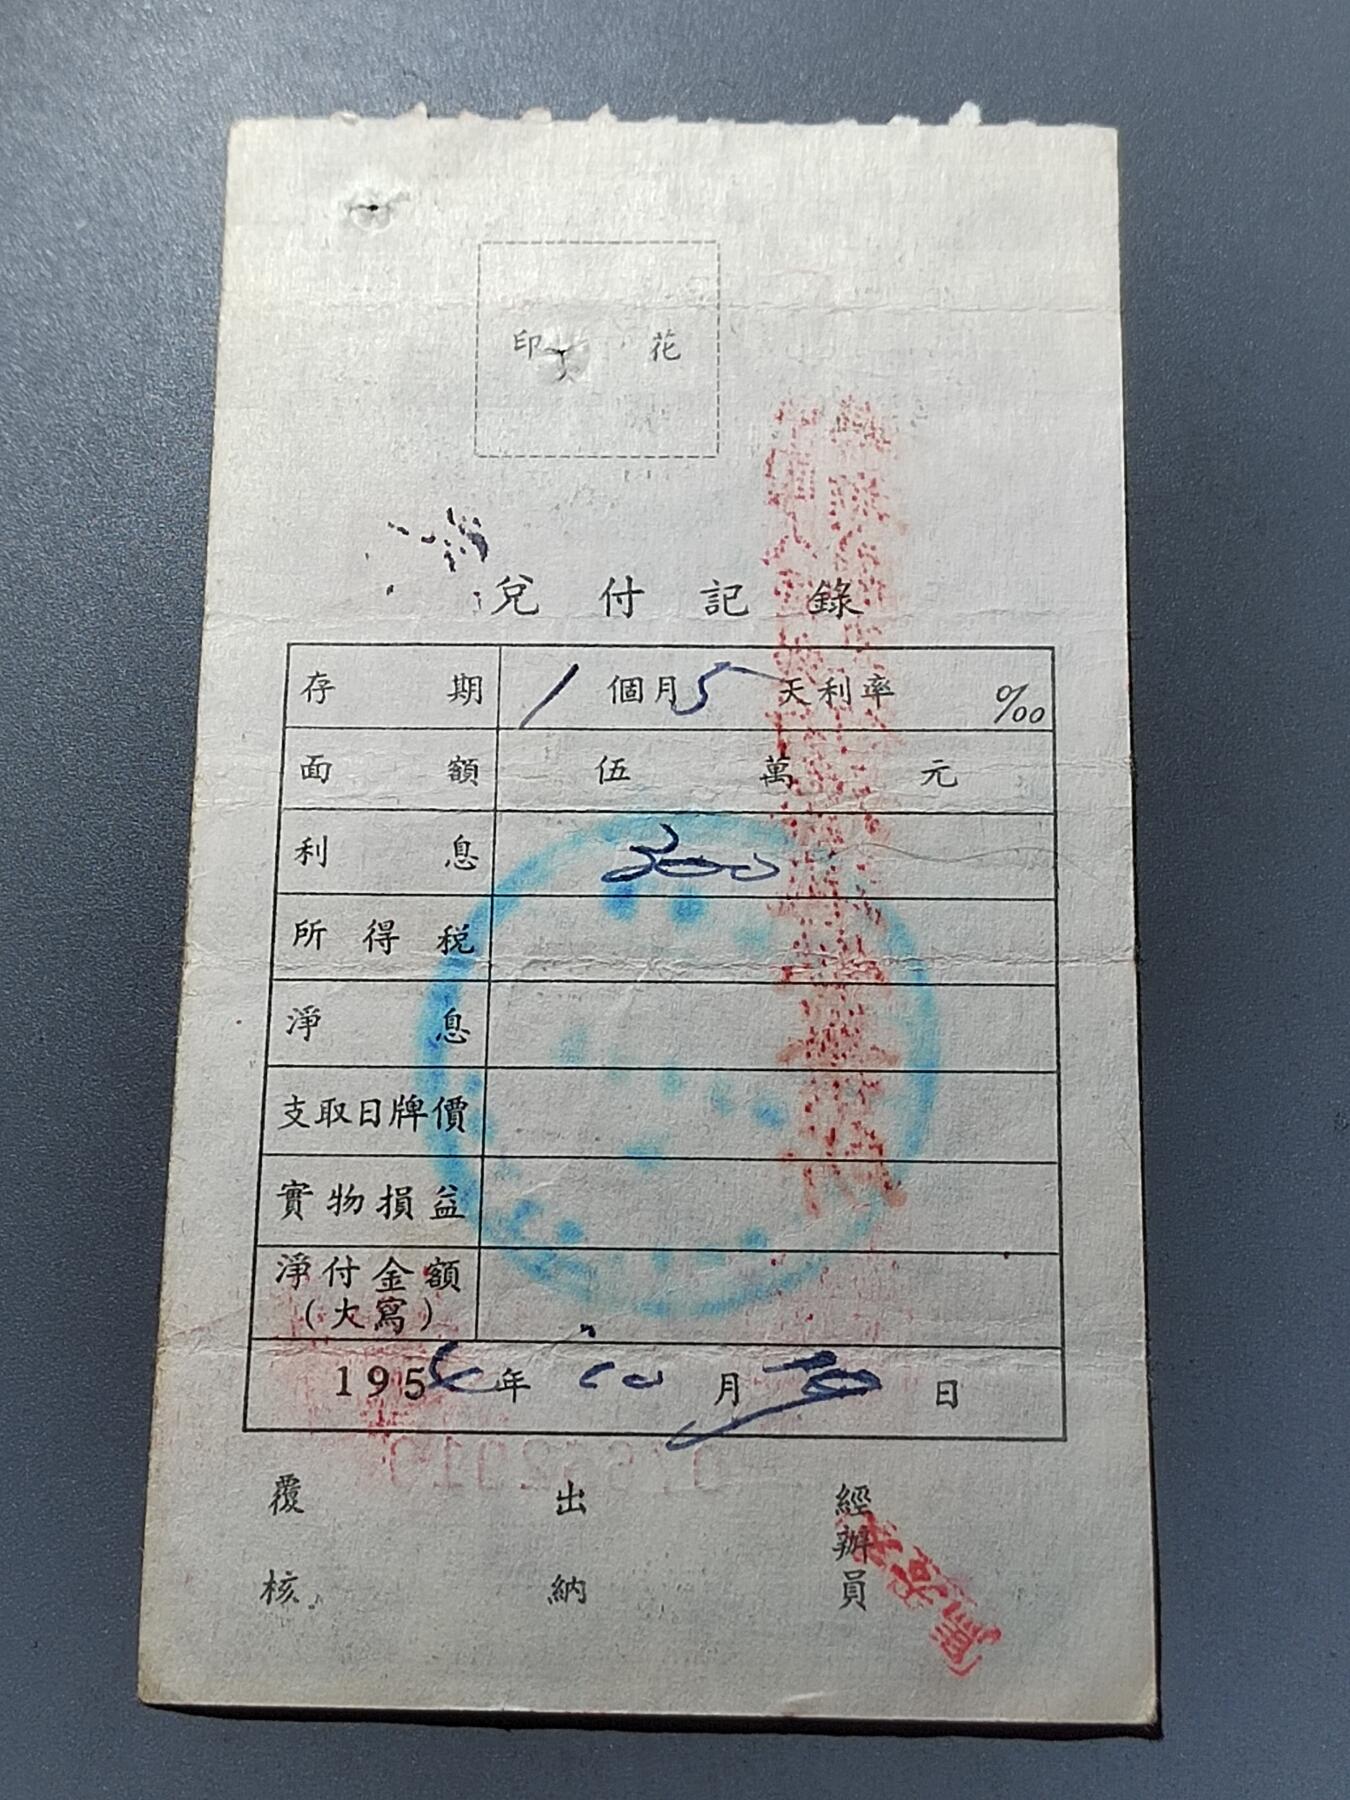 印 花
兌付記錄
存期 1 個月 5 天利率 ‰
面額 伍萬元
利息 300
所得稅
淨息
支取日牌價
實物損益
淨付金額
(大寫)
195 年 10 月 30 日
覆核 出納 經辦員